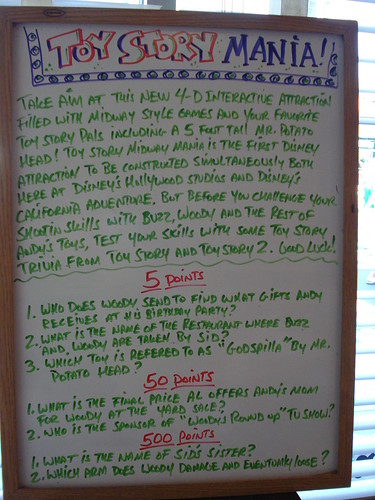 TOY STORY MANIA!
TAKE AIM AT THIS NEW 4-D INTERACTIVE ATTRACTION
FILLED WITH MIDWAY STYLE GAMES AND YOUR FAVORITE
TOY STORY PALS INCLUDING A 5 FOOT TALL MR. POTATO
HEAD! TOY STORY MIDWAY MANIA IS THE FIRST DISNEY
ATTRACTION TO BE CONSTRUCTED SIMULTANEOUSLY BOTH
HERE AT DISNEY'S HOLLYWOOD STUDIOS AND DISNEY'S
CALIFORNIA ADVENTURE. BUT BEFORE YOU CHALLENGE YOUR
SHOOTIN SKILLS WITH BUZZ, WOODY AND THE REST OF
ANDY'S TOYS, TEST YOUR SKILLS WITH SOME TOY STORY
TRIVIA FROM TOY STORY AND TOY STORY 2. GOOD LUCK!
5 POINTS
1. WHO DOES WOODY SEND TO FIND WHAT GIFTS ANDY
RECEIVES AT HIS BIRTHDAY PARTY?
2. WHAT IS THE NAME OF THE RESTAURANT WHERE BUZZ
AND WOODY ARE TAKEN BY SID?
3. WHICH TOY IS REFERED TO AS "GODSPILLA" BY MR.
POTATO HEAD?
50 POINTS
1. WHAT IS THE FINAL PRICE AL OFFERS ANDY'S MOM
FOR WOODY AT THE YARD SALE?
2. WHO IS THE SPONSOR OF "WOODY'S ROUND UP" TV SHOW?
500 POINTS
1. WHAT IS THE NAME OF SID'S SISTER?
2. WHICH ARM DOES WOODY DAMAGE AND EVENTUALLY LOOSE?